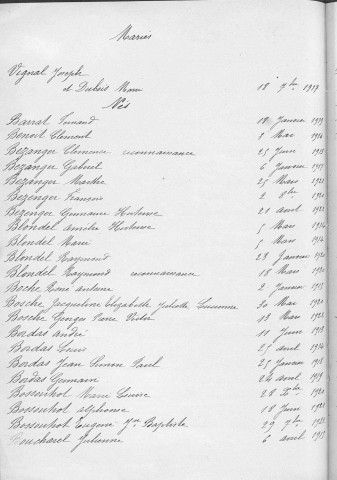 Mariés
Vignal Joseph
et Dubois Marie 18 9bre 1917
Nés
Barrat Fernand 18 Janvier 1919
Benoit Clément 2 Mai 1914
Bezanger Clémence reconnaissance 25 Juin
Bezanger Gabriel 6 Janvier
Bezanger Marthe 25 Mars 1921
Bezenger François 2 8bre
Bezenger Germaine Hortense 21 avril 1922
Blondel amélie Hortense 5 Mars 1914
Blondel Marie 5 Mars
Blondel Raymond 23 Janvier 1920
Blondel Raymond reconnaissance 18 Mars
Bosche René antoine 2 Janvier
Bosche Jacqueline Elizabeth Juliette Lucienne 30 Mai
Bosche Georges Pierre Victor 13 Mars 1922
Bordas andré 10 Juin 1913
Bordas Louis 25 avril 1914
Bordas Jean Simon Paul 25 Janvier 1918
Bordas Germain 24 avril 1919
Bossenhot Marie Louise 28 Xbre 1920
Bossenhot alphonse 18 Juin
Bossenhot Eugène Jn Baptiste 29 9bre
Boucharel Julienne 6 avril